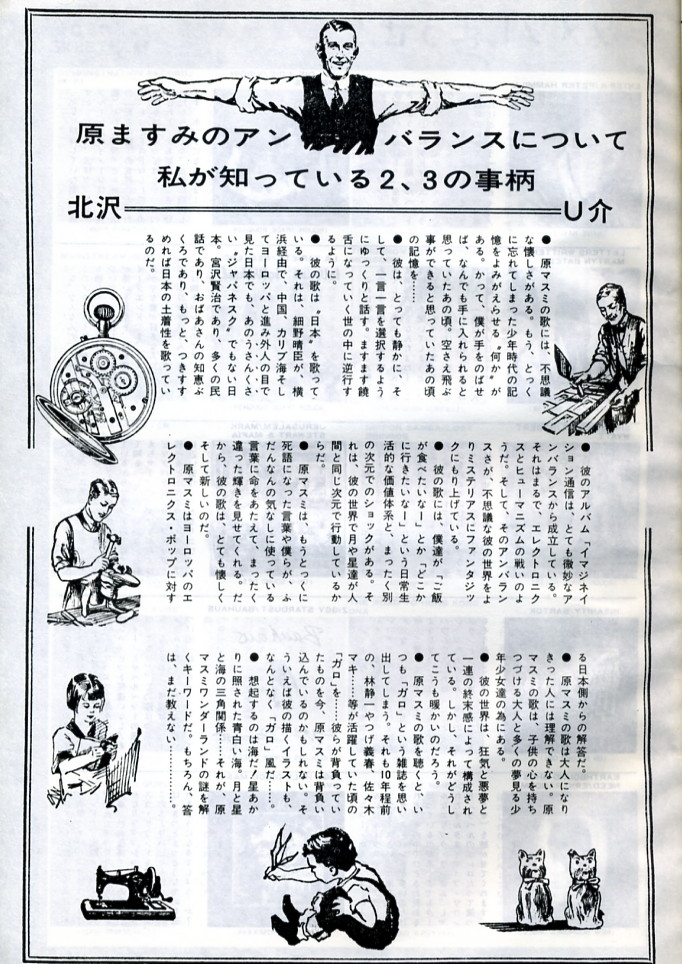 原ますみのアンバランスについて
私が知っている2、3の事柄
北沢 U介
● 原マスミの歌には、不思議
な懐しさがある。もう、とっく
に忘れてしまった少年時代の記
憶をよみがえらせる〝何か〟が
ある。かって、僕が手をのばせ
ば、なんでも手に入れられると
思っていたあの頃。空さえ飛ぶ
事ができると思っていたあの頃
の記憶を……
● 彼は、とっても静かに、そ
して、一言一言を選択するよう
にゆっくりと話す。ますます饒
舌になっていく世の中に逆行す
るように。
● 彼の歌は〝日本〟を歌って
いる。それは、細野晴臣が、横
浜経由で、中国、カリブ海そし
てヨーロッパと進み外人の目で
見た日本でも、あのうさんくさ
い〝ジャパネスク〟でもない日
本。宮沢賢治であり、多くの民
話であり、おばあさんの知恵ぶ
くろであり、もっと、つきすす
めれば日本の土着性を歌ってい
るのだ。
● 彼のアルバム「イマジネイ
ション通信」は、とても微妙なア
ンバランスから成立している。
それはまるで、エレクトロニク
スとヒューマニズムの戦いのよ
うだ。そして、そのアンバラン
スさが、不思議な彼の世界をよ
りミステリアスにファンタジッ
クにもり上げている。
● 彼の歌には、僕達が「ご飯
が食べたいなー」とか「どこか
に行きたいなー」という日常生
活的な価値体系と、まったく別
の次元でのショックがある。そ
れは、彼の世界で月や星達が人
間と同じ次元で行動しているか
らだ。
● 原マスミは、もうとっくに
死語になった言葉や僕らが、ふ
だんなんの気なしに使っている
言葉に命をあたえて、まったく
違った輝きを見せてくれる。だ
から、彼の歌は、とても懐しく
そして新しいのだ。
● 原マスミはヨーロッパのエ
レクトロニクス・ポップに対す
る日本側からの解答だ。
● 原マスミの歌は大人になり
きった人には理解できない。原
マスミの歌は、子供の心を持ち
つづける大人と多くの夢見る少
年少女達の為にある。
● 彼の世界は、狂気と悪夢と
一連の終末感によって構成され
ている。しかし、それがどうし
てこうも暖かいのだろう。
● 原マスミの歌を聴くと、い
つも「ガロ」という雑誌を思い
出してしまう。それも10年程前
の、林静一やつげ義春、佐々木
マキ……等が活躍していた頃の
「ガロ」を……彼らが背負ってい
たものを今、原マスミは背負い
込んでいるのかもしれない。そ
ういえば彼の描くイラストも、
なんとなく「ガロ」風だ……。
● 想起するのは海だ！星あか
りに照された青白い海。月と星
と海の三角関係……それが、原
マスミワンダーランドの謎を解
くキーワードだ。もちろん、答
は、まだ教えない…………。